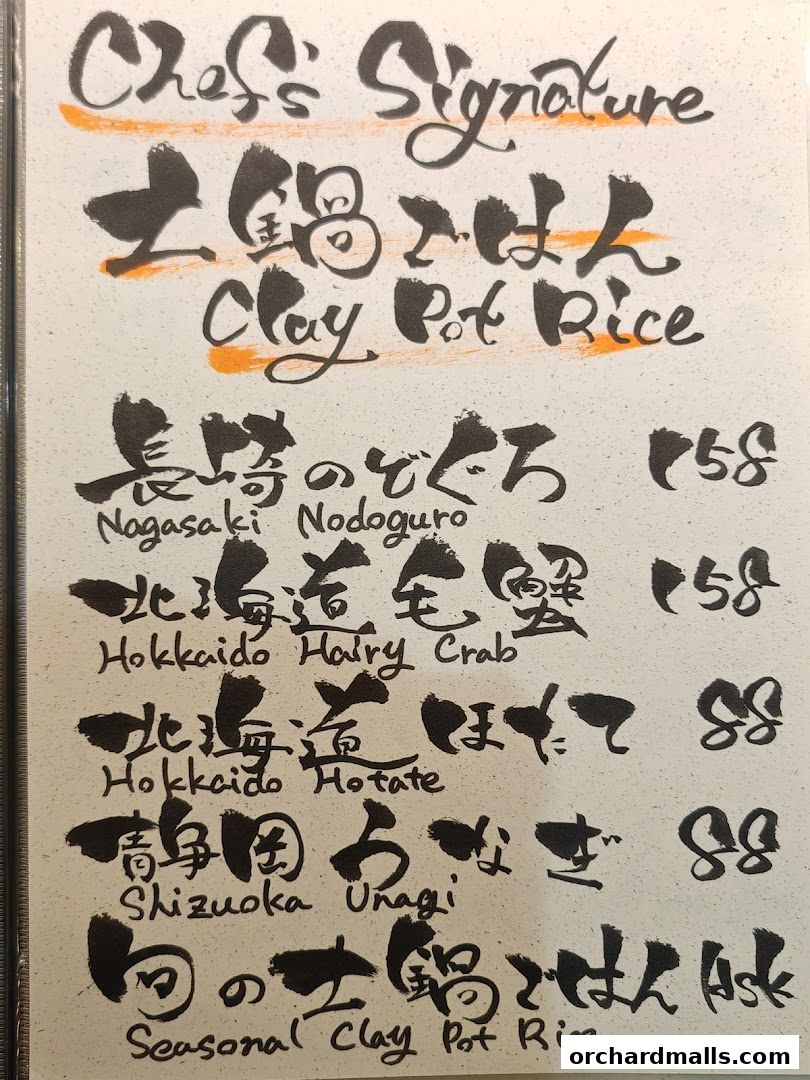 Chef's Signature
土鍋ごはん
Clay Pot Rice
長崎のどぐろ 158
Nagasaki Nodoguro
北海道毛蟹 158
Hokkaido Hairy Crab
北海道ほたて 88
Hokkaido Hotate
静岡うなぎ 88
Shizuoka Unagi
旬の土鍋ごはん Ask
Seasonal Clay Pot Rice
orchardmalls.com